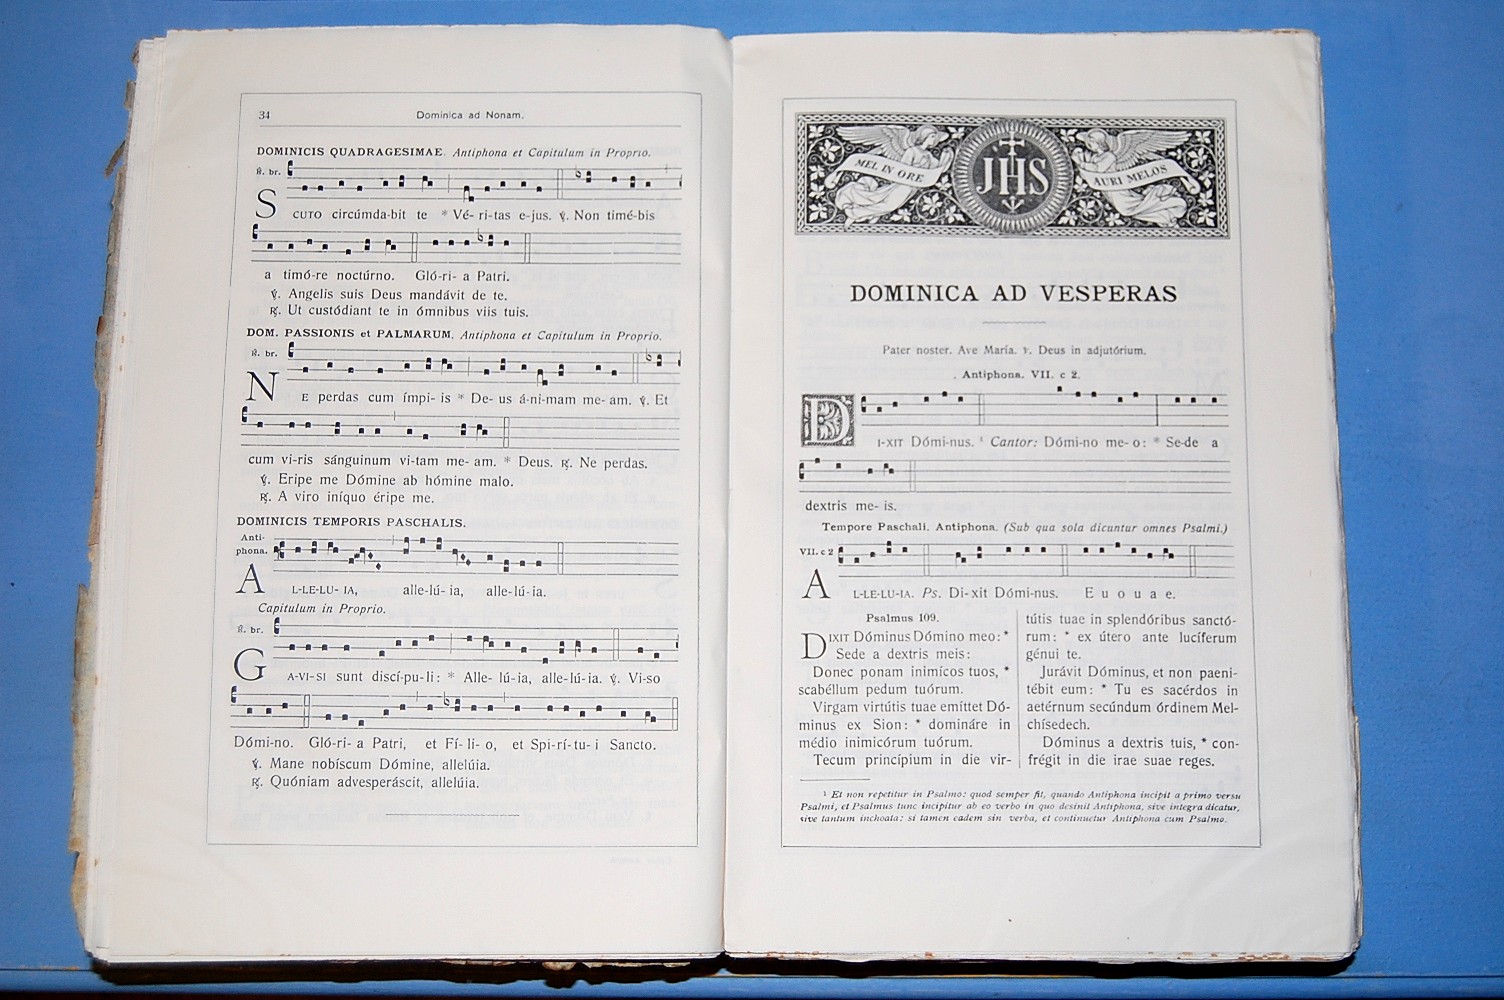 34
Dominica ad Nonam.
DOMINICIS QUADRAGESIMAE. Antiphona et Capitulum in Proprio.
℟. br.
SCUTO circúmda-bit te * Vé- ri-tas e-jus. ℣. Non timé-bis
a timó-re noctúrno. Gló-ri- a Patri.
℣. Angelis suis Deus mandávit de te.
℟. Ut custódiant te in ómnibus viis tuis.
DOM. PASSIONIS et PALMARUM. Antiphona et Capitulum in Proprio.
℟. br.
NE perdas cum ímpi- is * De- us á-ni-mam me- am. ℣. Et
cum vi-ris sánguinum vi-tam me- am. * Deus. ℟. Ne perdas.
℣. Eripe me Dómine ab hómine malo.
℟. A viro iníquo éripe me.
DOMINICIS TEMPORIS PASCHALIS.
Anti-
phona.
AL-LE-LU- IA, alle-lú- ia, alle-lú-ia.
Capitulum in Proprio.
℟. br.
GA-VI-SI sunt discí-pu-li: * Alle- lú-ia, alle-lú-ia. ℣. Vi-so
Dómi-no. Gló-ri- a Patri, et Fí- li- o, et Spi-rí-tu- i Sancto.
℣. Mane nobíscum Dómine, allelúia.
℟. Quóniam advesperáscit, allelúia.
MEL IN ORE
JHS
AURI MELOS
DOMINICA AD VESPERAS
Pater noster. Ave María. ℣. Deus in adjutórium.
Antiphona. VII. c 2.
DI-XIT Dómi-nus. ¹ Cantor: Dómi-no me- o: * Se-de a
dextris me- is.
Tempore Paschali. Antiphona. (Sub qua sola dicuntur omnes Psalmi.)
VII. c 2
AL-LE-LU-IA. Ps. Di-xit Dómi-nus. E u o u a e.
Psalmus 109.
DIXIT Dóminus Dómino meo: *
Sede a dextris meis:
Donec ponam inimícos tuos, *
scabéllum pedum tuórum.
Virgam virtútis tuae emíttet Dó-
minus ex Sion: * domináre in
médio inimicórum tuórum.
Tecum princípium in die vir-
tútis tuae in splendóribus sanctó-
rum: * ex útero ante lucíferum
génui te.
Jurávit Dóminus, et non paeni-
tébit eum: * Tu es sacérdos in
aetérnum secúndum órdinem Mel-
chísedech.
Dóminus a dextris tuis, * con-
frégit in die irae suae reges.
¹ Et non repetitur in Psalmo: quod semper fit, quando Antiphona incipit a primo versu
Psalmi, et Psalmus tunc incipitur ab eo verbo in quo desinit Antiphona, sive integra dicatur,
sive tantum inchoata: si tamen eadem sin verba, et continuetur Antiphona cum Psalmo.